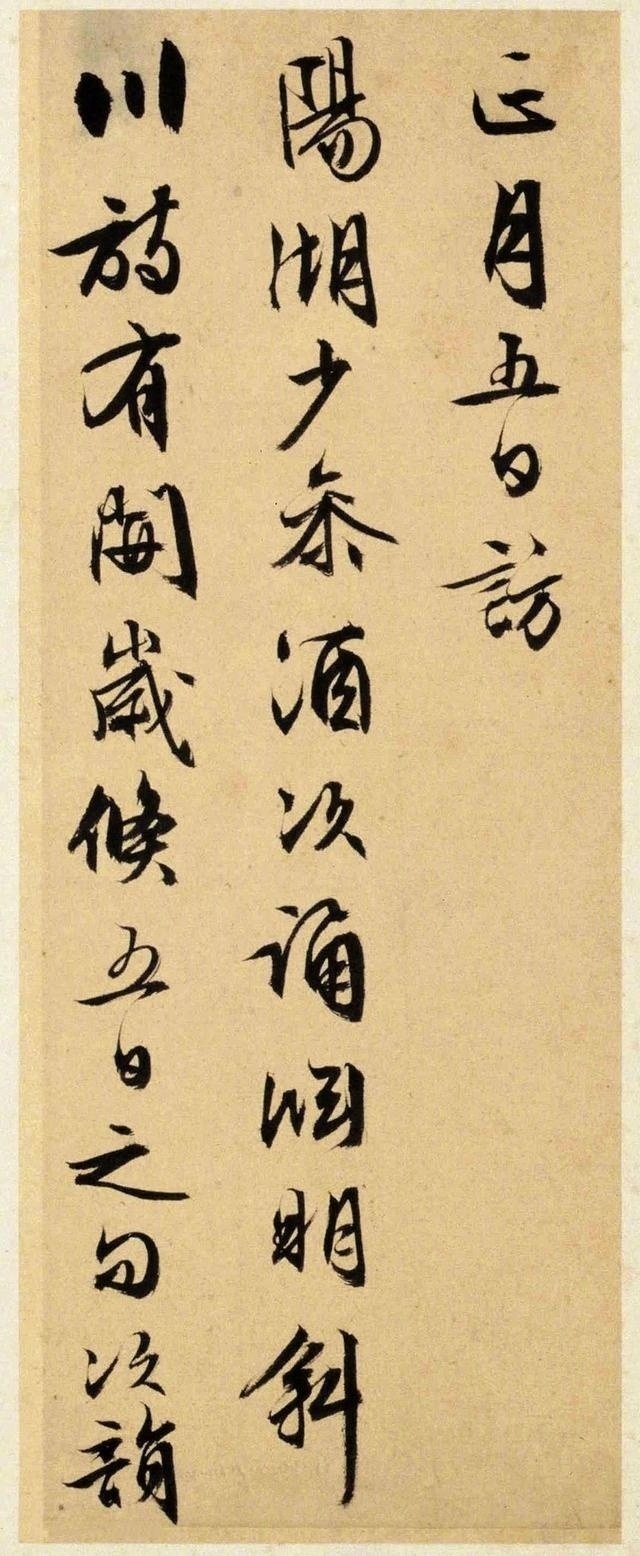 正月五日訪
陽湖少参酒次誦渊明斜
川詩有開歲倏五日之句次韻